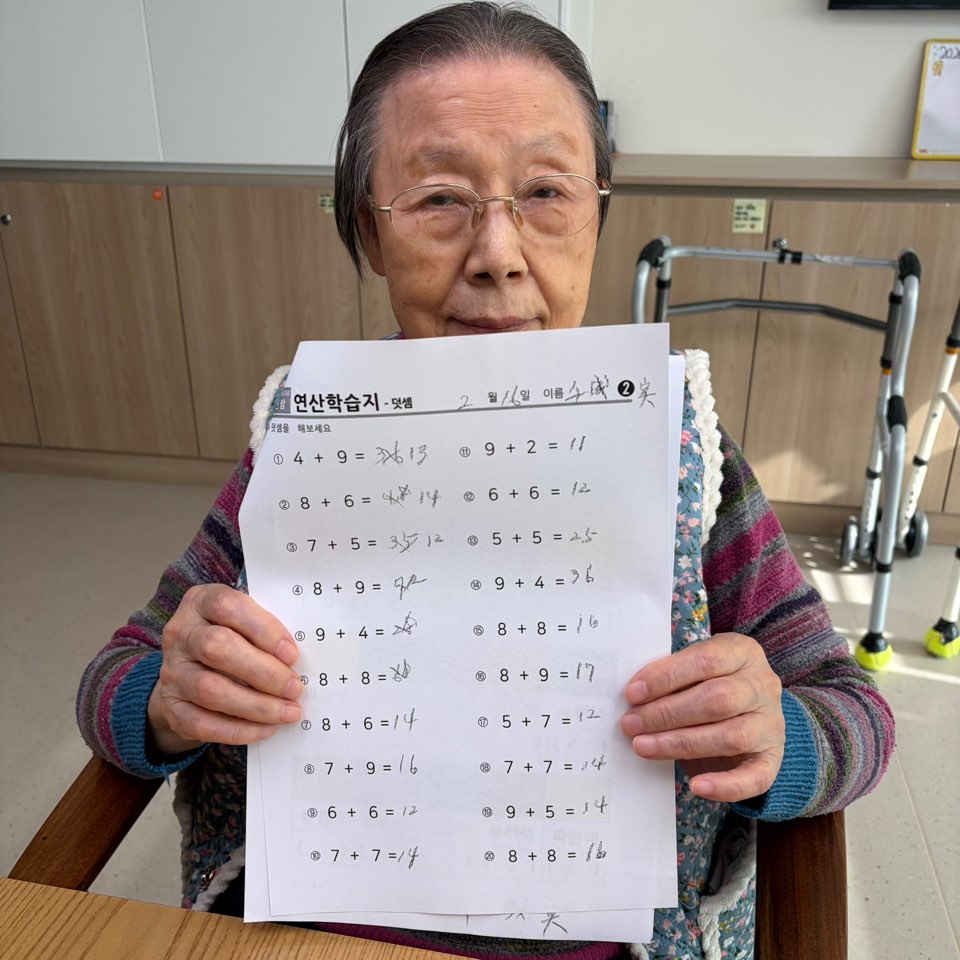 연산학습지 - 덧셈 2 월 16일 이름 ❷ 実
덧셈을 해보세요
① 4 + 9 = 13
⑪ 9 + 2 = 11
② 8 + 6 = 14
⑫ 6 + 6 = 12
③ 7 + 5 = 35 12
⑬ 5 + 5 = 25
④ 8 + 9 =
⑭ 9 + 4 = 36
⑤ 9 + 4 =
⑮ 8 + 8 = 16
⑥ 8 + 8 =
⑯ 8 + 9 = 17
⑦ 8 + 6 = 14
⑰ 5 + 7 = 12
⑧ 7 + 9 = 16
⑱ 7 + 7 = 14
⑨ 6 + 6 = 12
⑲ 9 + 5 = 14
⑩ 7 + 7 = 14
⑳ 8 + 8 = 16
実